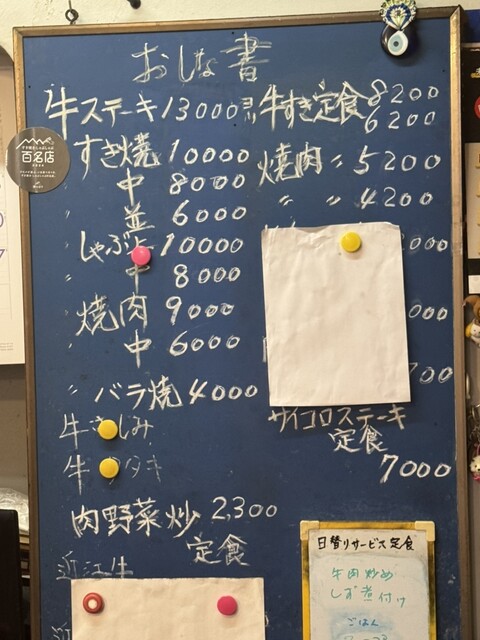 おしな書
牛ステーキ 13000円
すき焼 10000
〃 中 8000
〃 並 6000
しゃぶ 10000
〃 中 8000
焼肉 9000
〃 中 6000
〃 バラ焼 4000
牛 しみ
牛 タキ
肉野菜炒 2,300
定食
近江牛
牛すき定食 8200
6200
焼肉 〃 5200
〃 〃 4200
000
000
00
サイコロステーキ
定食
7000
百名店
日替りサービス定食
牛肉炒め
しず煮付け
ごはん